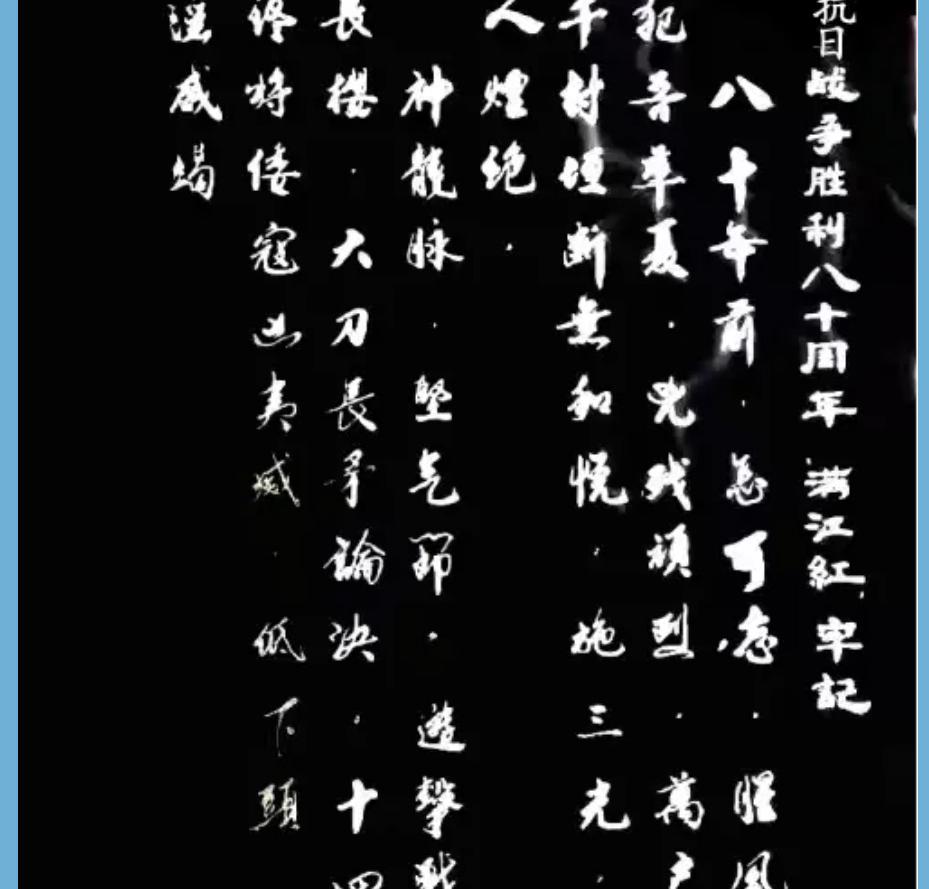 抗日战争胜利八十周年 满江紅·牢記
八十年前·怎可忘·腥風
犯吾華夏·兇残頑烈·萬户
千村垣断無和悦·施三光·
人煙绝·
神龍脉·堅气節·遊擊戰
長櫻·大刀長矛論决·十四
终将倭寇凶夷滅·低下頭
淫威竭